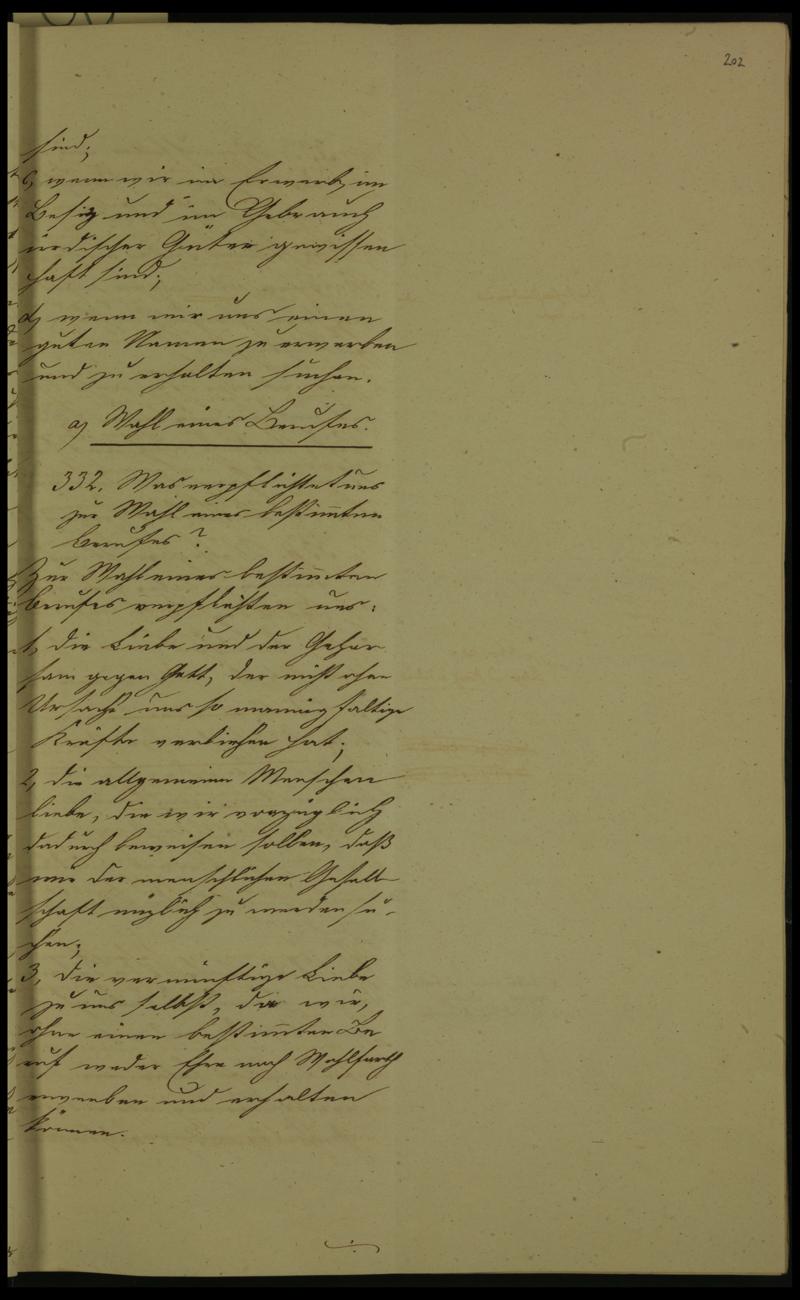 202
sind;
c, wenn wir im Erwerb, im
Besitz und im Gebrauch
irdischer Güter gewissen
haft sind;
d, wenn wir uns einen
guten Namen zu erwerben
und zu erhalten suchen.
a, Wahl eines Berufes.
332. Was verpflichtet uns
zur Wahl eines bestim̄ten
Berufes?
Zur Wahl eines bestim̄ten
Berufes verpflichten uns:
1, die Liebe und der Gehor
sam gegen Gott, der nicht ohne
Ursache uns so mannigfaltige
Kräfte verliehen hat;
2, die allgemeine Menschen
liebe, die wir vorzüglich
dadurch beweisen sollen, daß
wir der menschlichen Gesell
schaft nüzlich zu werden su-
chen;
3, die vernünftige Liebe
zu uns selbst, da wir,
ohne einen bestim̄ten Be
ruf weder Ehre noch Wohlfarth
erwerben und erhalten
können.